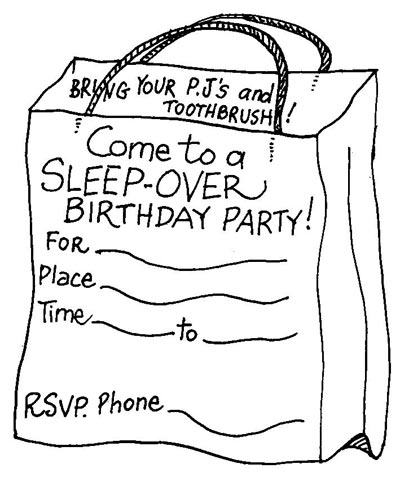 BRING YOUR P.J's and
TOOTHBRUSH!
Come to a
SLEEP-OVER
BIRTHDAY PARTY!
FOR
Place
Time to
RSVP. Phone